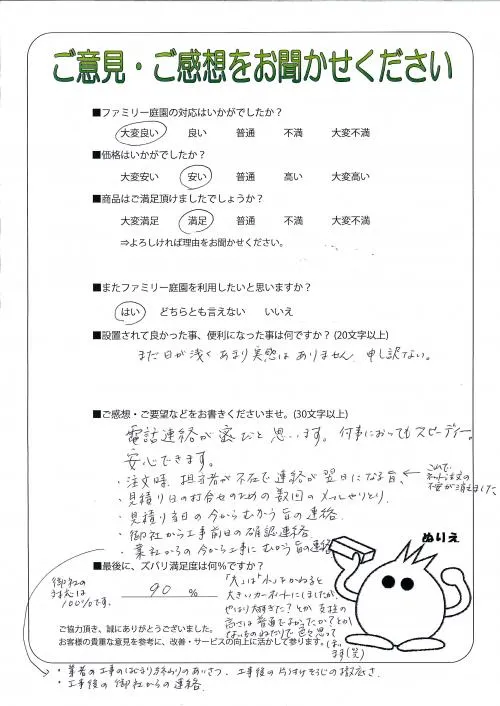 ご意見・ご感想をお聞かせください
■ファミリー庭園の対応はいかがでしたか？
大変良い 良い 普通 不満 大変不満
■価格はいかがでしたか？
大変安い 安い 普通 高い 大変高い
■商品はご満足頂けましたでしょうか？
大変満足 満足 普通 不満 大変不満
⇒よろしければ理由をお聞かせください。
■またファミリー庭園を利用したいと思いますか？
はい どちらとも言えない いいえ
■設置されて良かった事、便利になった事は何ですか？(20文字以上)
まだ日が浅くあまり実感はありません。申し訳ない。
■ご感想・ご要望などをお書きくださいませ。(30文字以上)
電話連絡が密だと思います。何事においてもスピーディー。
安心できます。
・注文時、担当者が不在で連絡が翌日になる旨、
これで、
ネット注文の
不安が消えました、
・見積り日の打合せのための数回のメールやりとり、
・見積り当日の今からむかう旨の連絡、
・御社から工事前日の確認連絡
・業社からの今から工事にむかう旨の連絡
■最後に、ズバリ満足度は何％ですか？
90 %
御社の
対応は
100%です。
「大」は「小」をかねると
大きいカーポートにしましたが
やはり大きすぎた？とか 支柱の
高さは普通でよかったか？とか
色々思って
います(笑)
ぬりえ
ご協力頂き、誠にありがとうございました。
お客様の貴重な意見を参考に、改善・サービスの向上に活かして参ります。
・業者の工事のはじまり終わりのあいさつ、工事後の片づけそうじの徹底さ、
・工事後の御社からの連絡